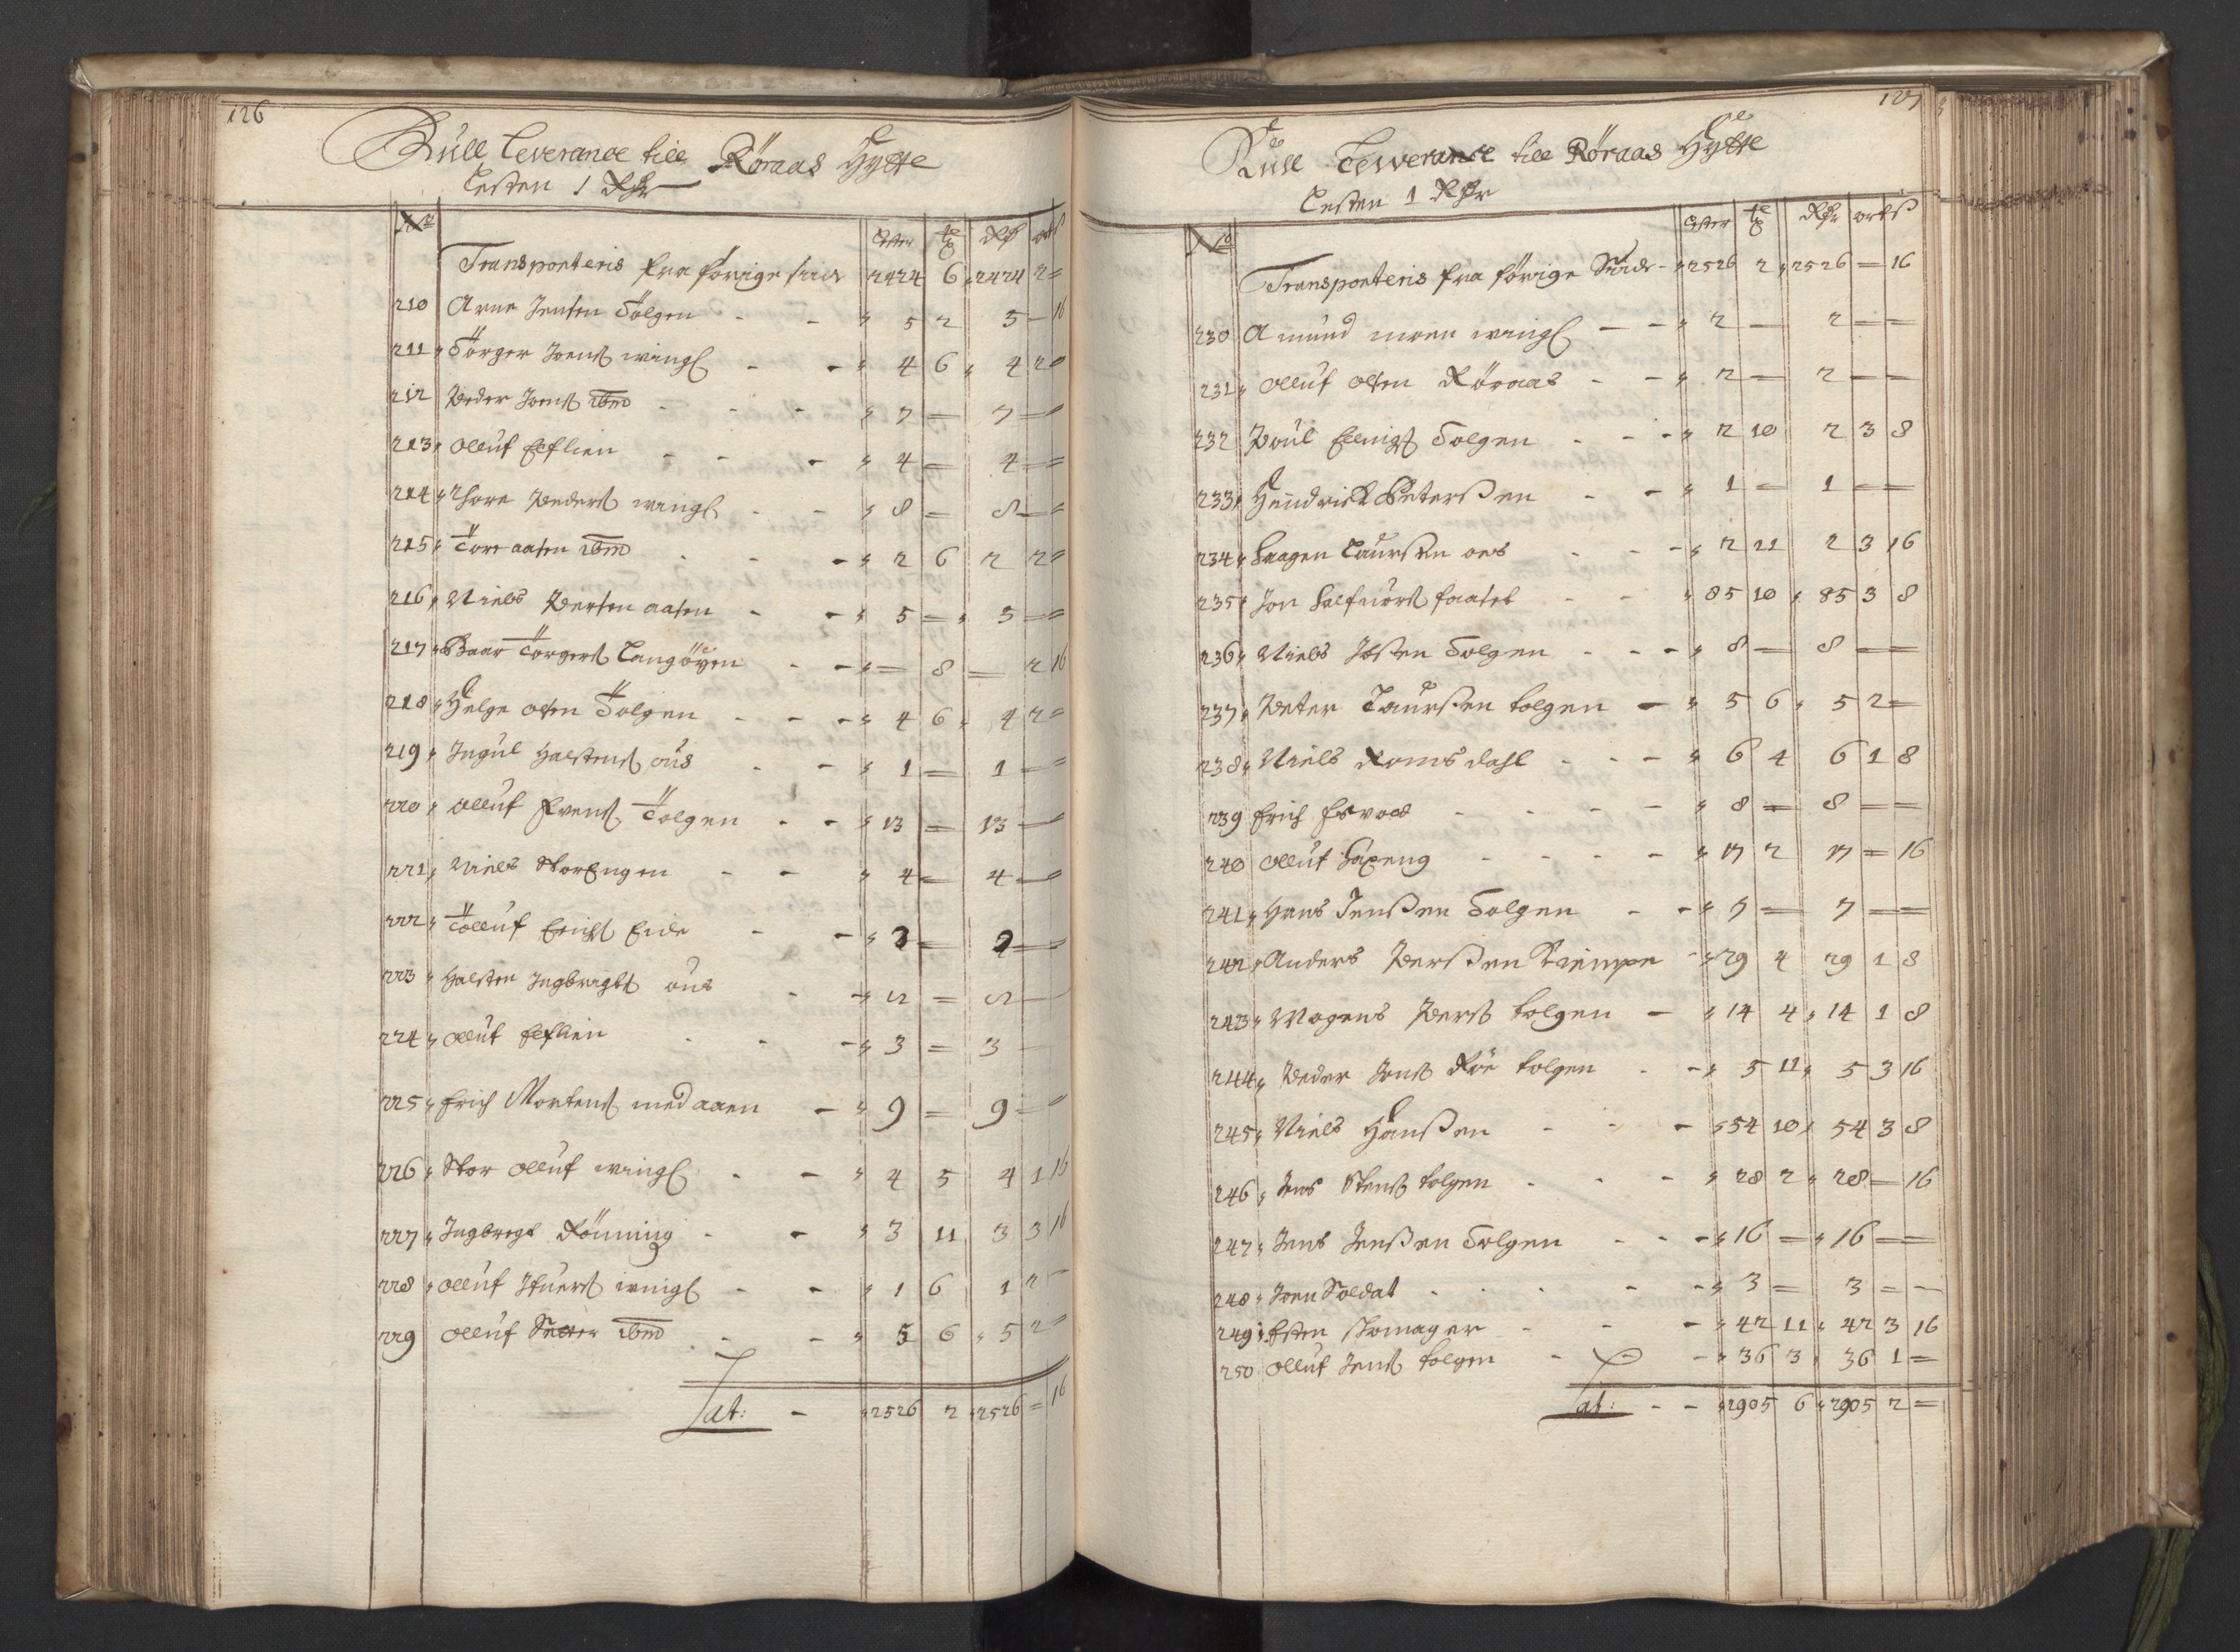 126
Kull Leverance till Röraas Hytte
Lesten 1 Rdr
No Lester tr Rdr ort ß
Transporteris fra forige side 2424 6 2424 2 =
210 Arne Jensen Tolgen - - 5 2 5 - 16
211 Törger Joens wingl - - 4 6 4 2 =
212 Peder Joens ibm - - - 7 = 7 = =
213 Olluf Eeflien - - - 4 = 4 = =
214 Thore Peders wingl - - 8 = 8 = =
215 Tore aasen ibm - - - 2 6 2 2 =
216 Niels Persen aasen - - 5 = 5 = =
217 Baar Torgers Langöyen - - = 8 = 2 16
218 Helge olsen Tolgen - - - 4 6 4 2 =
219 Ingul Halstens ous - - 1 = 1 = =
220 Olluf Evens Tolgen - - 13 = 13 =
221 Niels StorEngen - - 4 = 4 =
222 Tolluf Erichs Eide - - 2 = 2 =
223 Halsten Ingbrigts ous - - 2 = 2 -
224 Olluf Eeflien - - - 3 = 3 -
225 Erich Mortens med aaen - 9 = 9 =
226 Stor Olluf wingl - - 4 5 4 1 16
227 Ingbrigt Rönning - - 3 11 3 3 16
228 Olluf Ifuers wingl - - 1 6 1 2 -
229 Olluf Sæter ibm - - 5 6 5 2 =
Lat: - 2526 2 2526 = 16
127
Kull Leverance till Röraas Hytte
Lesten 1 Rdr
No Lester tr Rdr ort ß
Transporteris fra förige Side - 2526 2 2526 = 16
230 Amund moen wingl - - 2 - 2 - =
231 Olluf olsen Röraas - - 2 - 2 - -
232 Poul Ellings Tolgen - - - 2 10 2 3 8
233 Hendrick Peterßen - - 1 = 1 - =
234 Haagen Laurßen oes - - - 2 11 2 3 16
235 Jon Halfuors faaset - - 85 10 85 3 8
236 Niels Joßen Tolgen - - - 8 - 8 - -
237 Peter Laurßen tolgen - 5 6 5 2 =
238 Niels Romsdahl - - - 6 4 6 1 8
239 Erich Esvold - - - - 8 = 8 - =
240 Olluf Haxeng - - - - 17 2 17 = 16
241 Hans Jenßen Tolgen - - 7 - 7 - -
242 Anders Perßen Kiempe - 29 4 29 1 8
243 Mogens Pers tolgen - 14 4 14 1 8
244 Peder Jens Röe tolgen - - 5 11 5 3 16
245 Niels Hanßen - - - 54 10 54 3 8
246 Jens Stens tolgen - - - 28 2 28 - 16
247 Jens Jenßen Tolgen - - - 16 - 16 - -
248 Joen Soldat - - - - - 3 = 3 = -
249 Esten skomager - - - 42 11 42 3 16
250 Olluf Jens tolgen - - - 36 3 36 1 =
Lat: - - 2905 6 2905 2 =